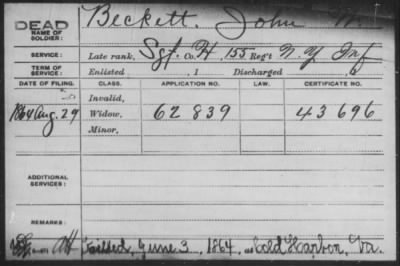 DEAD
NAME OF SOLDIER:
Beckett. John W.
SERVICE: Late rank, Sgt. Co. H, 155 Reg't N.Y. Inf
TERM OF SERVICE: Enlisted , 1 Discharged , 1
DATE OF FILING. CLASS. APPLICATION NO. LAW. CERTIFICATE NO.
Invalid,
1864 Aug. 29 Widow, 62839 43696
Minor,
ADDITIONAL SERVICES:
REMARKS:
Killed, June 3, 1864, at Cold Harbor, Va.